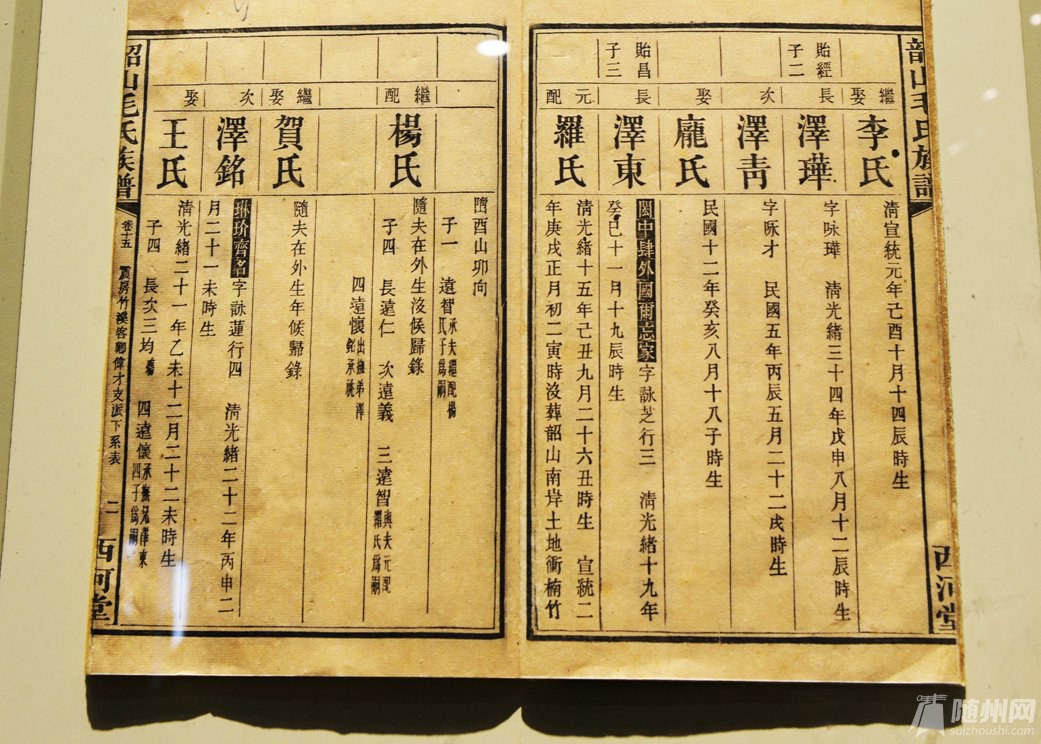 韶山毛氏族譜
西河堂
繼娶
李氏
清宣統元年己酉十月十四辰時生
貽經
子二
長
澤璍
字咏璍 清光緒三十四年戊申八月十二辰時生
次
澤靑
字咏才 民國五年丙辰五月二十二戌時生
娶
龐氏
民國十二年癸亥八月十八子時生
貽昌
子三
長
澤東
閎中肆外國爾忘家字詠芝行三 淸光緒十九年
癸巳十一月十九辰時生
元配
羅氏
淸光緒十五年己丑九月二十六丑時生 宣統二
年庚戌正月初二寅時沒葬韶山南岸土地衝楠竹
酉山卯向
子一 遠智承夫繼配楊
氏子爲嗣
繼配
楊氏
隨夫在外生沒候歸錄
子四 長遠仁 次遠義 三遠智與夫元配
羅氏爲嗣
四遠懷出撫弟澤
銘承祧
繼娶
賀氏
隨夫在外生年候歸錄
次
澤銘
琳玠齊名字詠蓮行四 淸光緒二十二年丙申二
月二十一未時生
娶
王氏
淸光緒二十一年乙未十二月二十二未時生
子四 長次三均 四遠懷承撫兄澤東
四子爲嗣
韶山毛氏族譜
卷十五
震房竹溪客卿偉才支派下系表
二
西河堂
随州网
suizhoushi.com